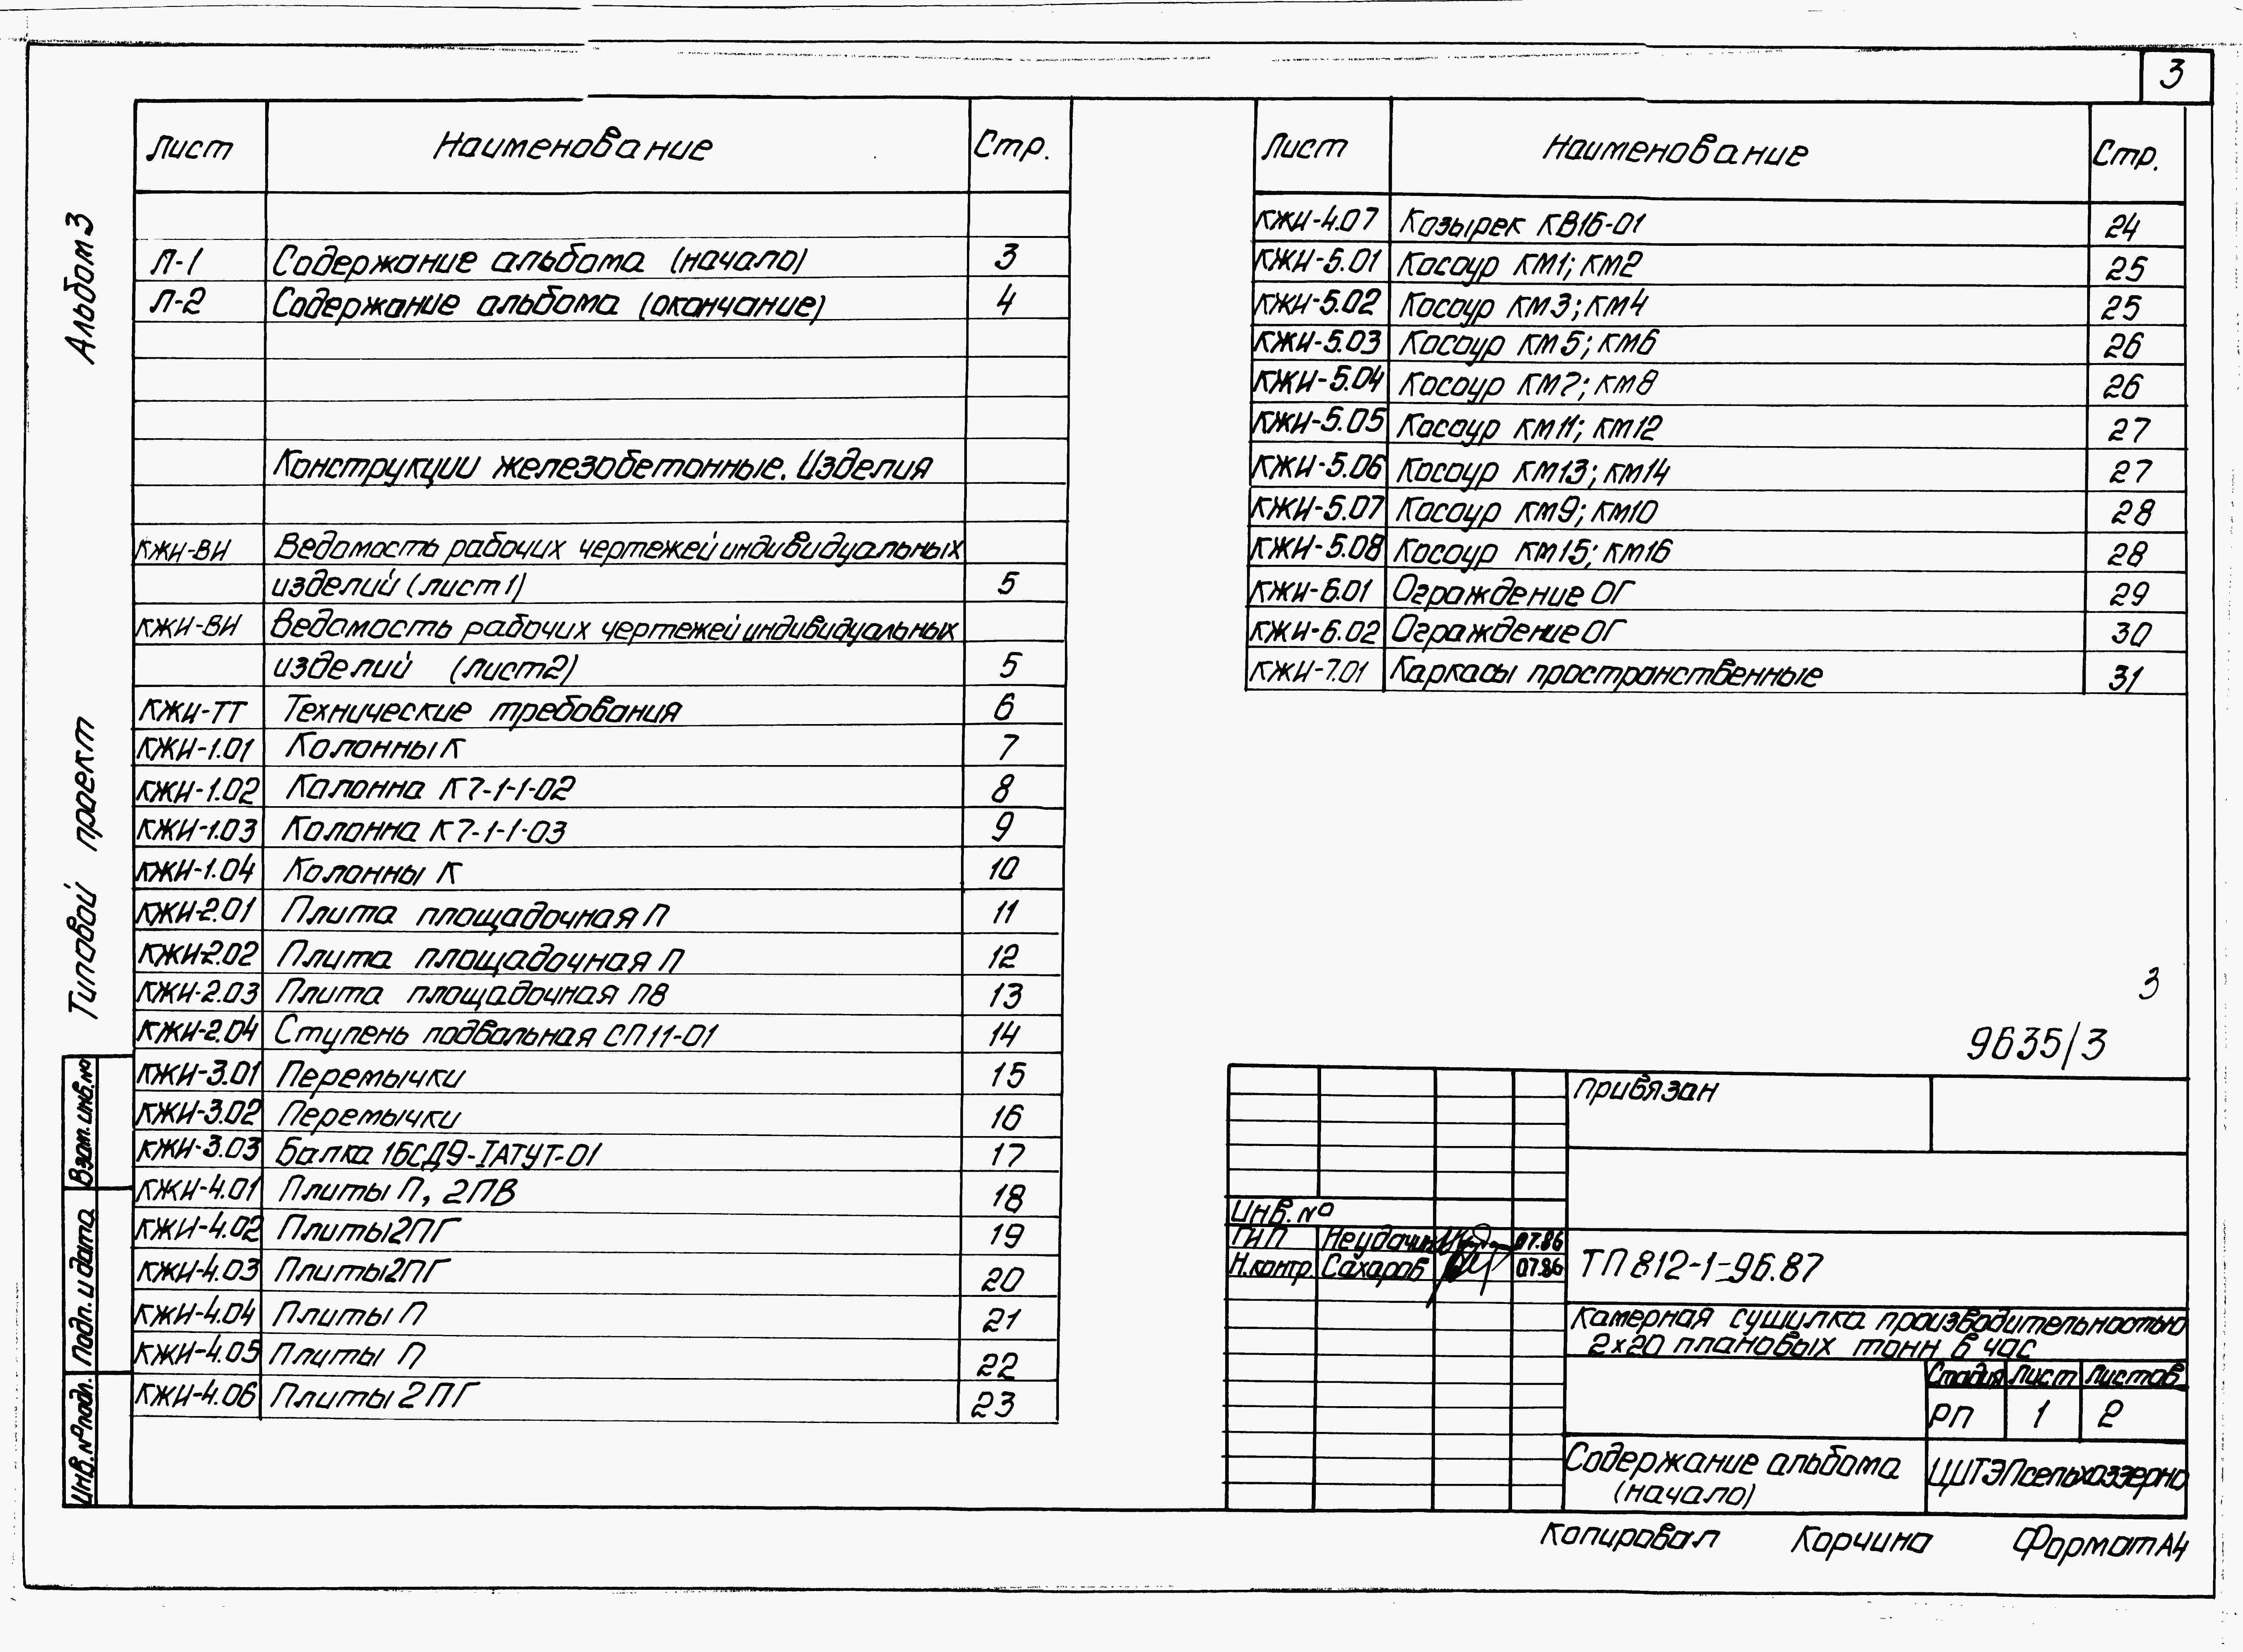 3
Альбом 3
Типовой проект
Взам. инв. №
Подп. и дата
Инв. № подл.
Лист Наименование Стр.
Л-1 Содержание альбома (начало) 3
Л-2 Содержание альбома (окончание) 4
Конструкции железобетонные. Изделия
КЖИ-ВИ Ведомость рабочих чертежей индивидуальных
изделий (лист 1) 5
КЖИ-ВИ Ведомость рабочих чертежей индивидуальных
изделий (лист 2) 5
КЖИ-ТТ Технические требования 6
КЖИ-1.01 Колонны К 7
КЖИ-1.02 Колонна К7-1-1-02 8
КЖИ-1.03 Колонна К7-1-1-03 9
КЖИ-1.04 Колонны К 10
КЖИ-2.01 Плита площадочная П 11
КЖИ-2.02 Плита площадочная П 12
КЖИ-2.03 Плита площадочная П8 13
КЖИ-2.04 Ступень подвальная СП11-01 14
КЖИ-3.01 Перемычки 15
КЖИ-3.02 Перемычки 16
КЖИ-3.03 Балка 1БСД9-IАТУТ-01 17
КЖИ-4.01 Плиты П, 2ПВ 18
КЖИ-4.02 Плиты 2ПГ 19
КЖИ-4.03 Плиты 2ПГ 20
КЖИ-4.04 Плиты П 21
КЖИ-4.05 Плиты П 22
КЖИ-4.06 Плиты 2ПГ 23
Лист Наименование Стр.
КЖИ-4.07 Козырек КВ1Б-01 24
КЖИ-5.01 Косоур КМ1; КМ2 25
КЖИ-5.02 Косоур КМ3; КМ4 25
КЖИ-5.03 Косоур КМ5; КМ6 26
КЖИ-5.04 Косоур КМ7; КМ8 26
КЖИ-5.05 Косоур КМ11; КМ12 27
КЖИ-5.06 Косоур КМ13; КМ14 27
КЖИ-5.07 Косоур КМ9; КМ10 28
КЖИ-5.08 Косоур КМ15; КМ16 28
КЖИ-6.01 Ограждение ОГ 29
КЖИ-6.02 Ограждение ОГ 30
КЖИ-7.01 Каркасы пространственные 31
3
9635/3
Привязан
Инв. №
ГИП Неудачин 07.86
Н.контр. Сахаров 07.86
ТП 812-1-96.87
Камерная сушилка производительностью
2х20 плановых тонн в час
Стадия Лист Листов
РП 1 2
Содержание альбома
(начало)
ЦИТЭПсельхоззерно
Копировал Корчина Формат А4